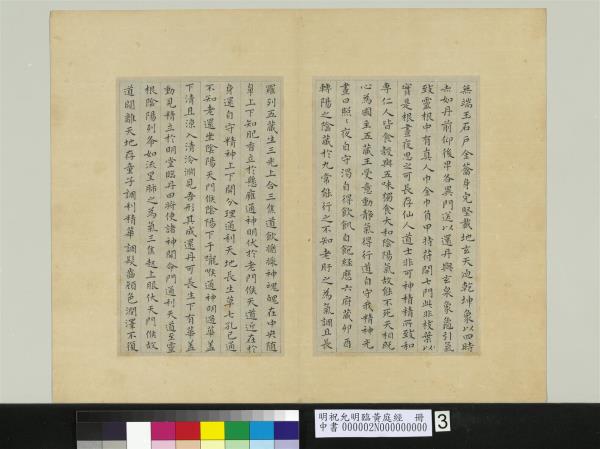 無端玉石戶金籥身完堅載地玄天迴乾坤象以四時
赤如丹前仰後卑各異門送以還丹與玄泉象龜引氣
致靈根中有真人巾金巾負甲持符開七門此非枝葉以
實是根晝夜思之可長存仙人道士非可神積精所致和
專仁人皆食穀與五味獨食大和陰陽氣故能不死天相既
心為國主五藏王受意動靜氣得行道自守我精神光
晝日照〻夜自守渴自得飲飢自飽經歷六府藏卯酉
轉陽之陰藏於九常能行之不知老肝之為氣調且長
羅列五藏生三光上合三焦道飲漿液神魂魄在中央隨
鼻上下知肥香立於懸膺通神明伏於老門候天道近在於
身還自守精神上下開分理通利天地長生草七孔已通
不知老還坐陰陽天門候陰陽下于嚨喉通神明過華蓋
下清且涼入清泠淵見吾形其成還丹可長生下有華蓋
動見精立於明堂臨丹田將使諸神開命門通利天道至靈
根陰陽列布如流星肺之為氣三焦起上服伏天門候故
道闚離天地存童子調利精華調髮齒顏色潤澤不復
明祝允明臨黃庭經 冊
中書 000002N000000000
3